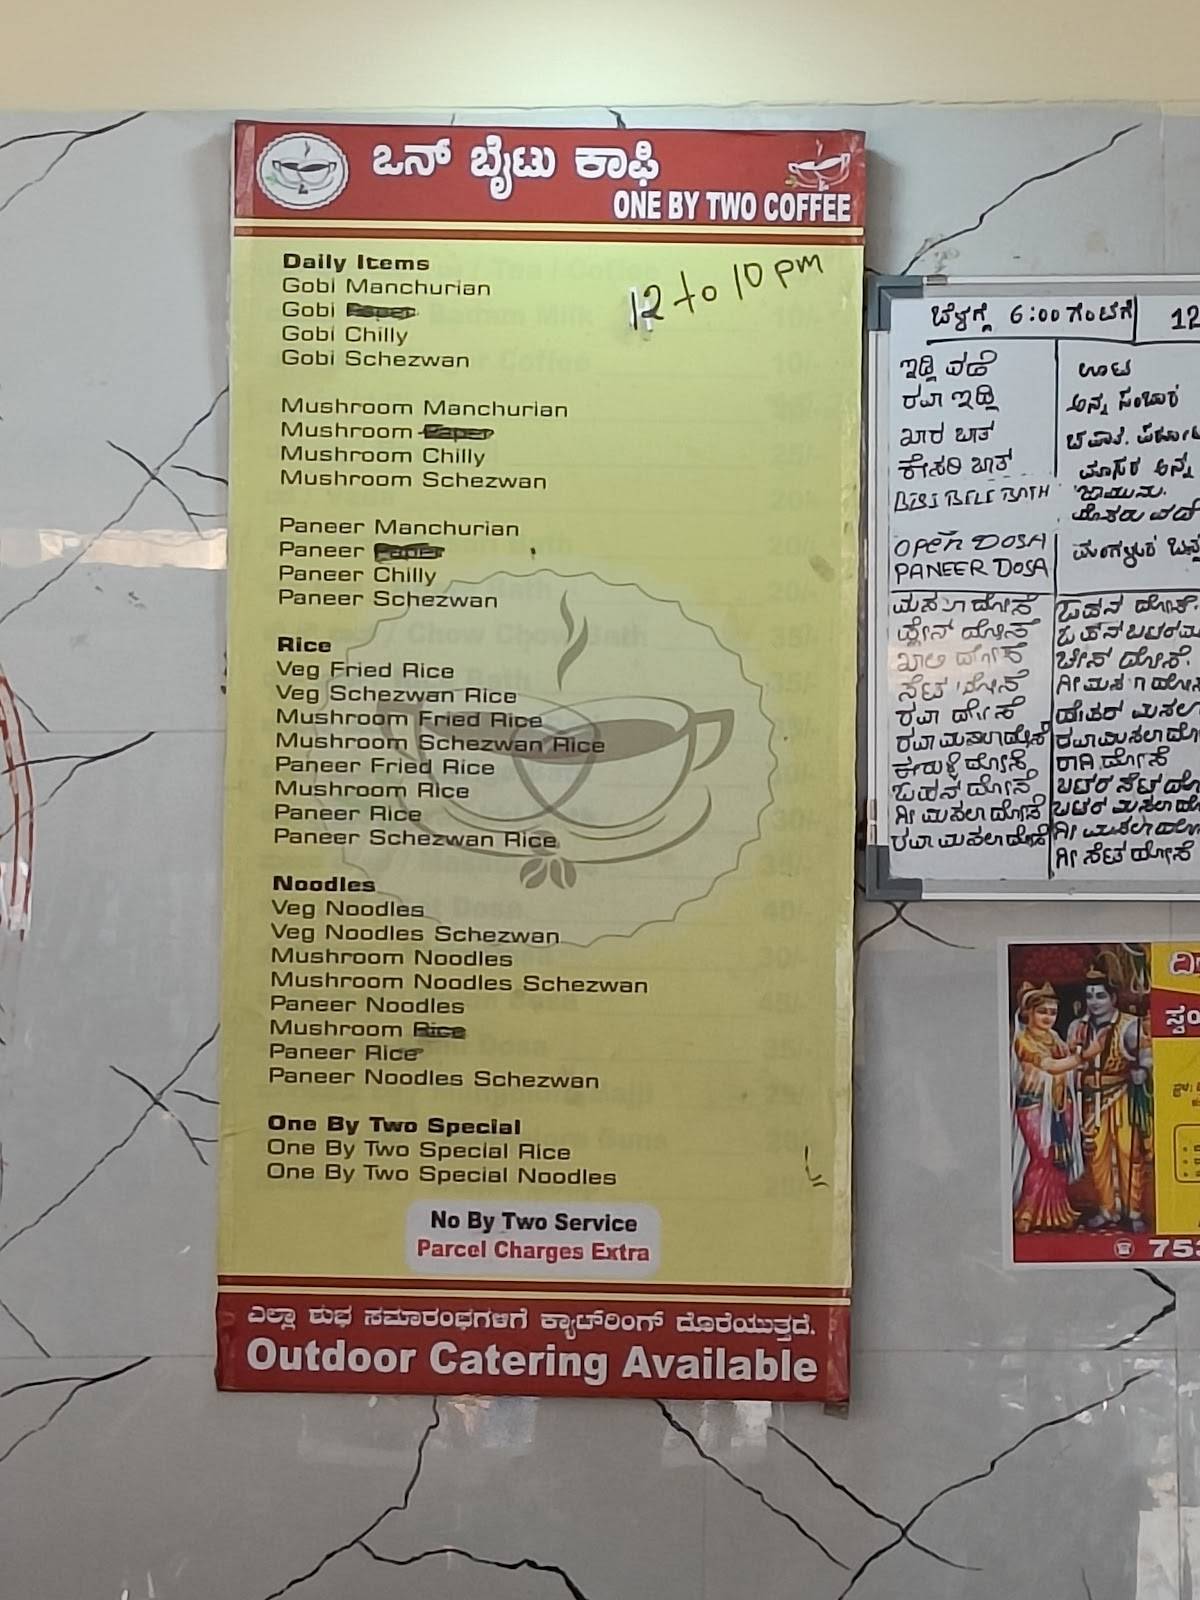 ಒನ್ ಬೈಟು ಕಾಫಿ
ONE BY TWO COFFEE
12 to 10 pm
Daily Items
Gobi Manchurian
Gobi Paper
Gobi Chilly
Gobi Schezwan
Mushroom Manchurian
Mushroom Paper
Mushroom Chilly
Mushroom Schezwan
Paneer Manchurian
Paneer Paper
Paneer Chilly
Paneer Schezwan
Rice
Veg Fried Rice
Veg Schezwan Rice
Mushroom Fried Rice
Mushroom Schezwan Rice
Paneer Fried Rice
Mushroom Rice
Paneer Rice
Paneer Schezwan Rice
Noodles
Veg Noodles
Veg Noodles Schezwan
Mushroom Noodles
Mushroom Noodles Schezwan
Paneer Noodles
Mushroom Rice
Paneer Rice
Paneer Noodles Schezwan
One By Two Special
One By Two Special Rice
One By Two Special Noodles
No By Two Service
Parcel Charges Extra
ಎಲ್ಲಾ ಶುಭ ಸಮಾರಂಭಗಳಿಗೆ ಕ್ಯಾಟ್‌ರಿಂಗ್ ದೊರೆಯುತ್ತದೆ.
Outdoor Catering Available
ಬೆಳಗ್ಗೆ 6:00 ಗಂಟೆಗೆ
12
ಇಡ್ಲಿ ವಡೆ
ರವಾ ಇಡ್ಲಿ
ಖಾರ ಬಾತ್
ಕೇಸರಿ ಬಾತ್
BISI BELE BATH
OPEN DOSA
PANEER DOSA
ಮಸಾಲ ದೋಸೆ
ಪ್ಲೇನ್ ದೋಸೆ
ಖಾಲಿ ದೋಸೆ
ಸೆಟ್ ದೋಸೆ
ರವಾ ದೋಸೆ
ರವಾ ಮಸಲಾ ದೋಸೆ
ಈರುಳ್ಳಿ ದೋಸೆ
ಓಪನ ದೋಸೆ
ಗೀ ಮಸಲಾ ದೋಸೆ
ರವಾ ಮಸಲಾ ದೋಸೆ
ಊಟ
ಅನ್ನ ಸಂಬಾರ
ಮೊಸರು ವಡೆ
ಓಪನ ದೋಸೆ.
ಚೀಸ್ ದೋಸೆ.
ರಾಗಿ ದೋಸೆ
ಗೀ ಸೆಟ ದೋಸೆ
753